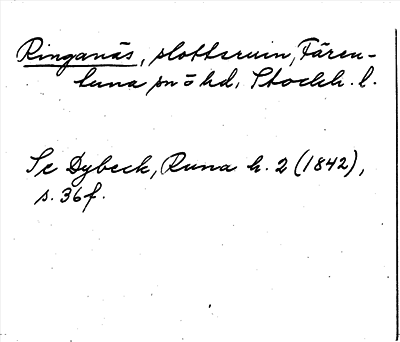 Ringanäs, slottsruin, Fären-
tuna sn ö hd, Stockh. l.
Se Dybeck, Runa h. 2 (1842),
s. 36 f.